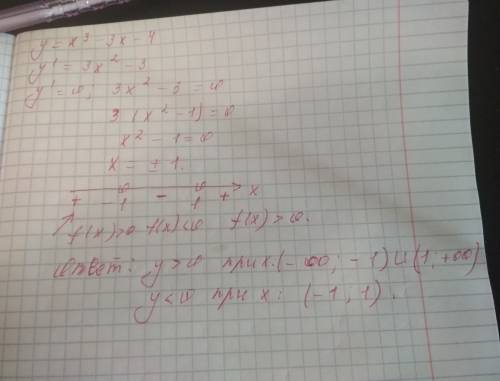 y = x³ - 3x - 4
y' = 3x² - 3
y' = 0; 3x² - 3 = 0
3 (x² - 1) = 0
x² - 1 = 0
x = ± 1.
+ -1 - 1 + x
f(x)>0 f(x)<0 f(x)>0.
Ответ: y>0 при x: (-∞; -1) ∪ (1, +∞)
y<0 при x: (-1, 1).